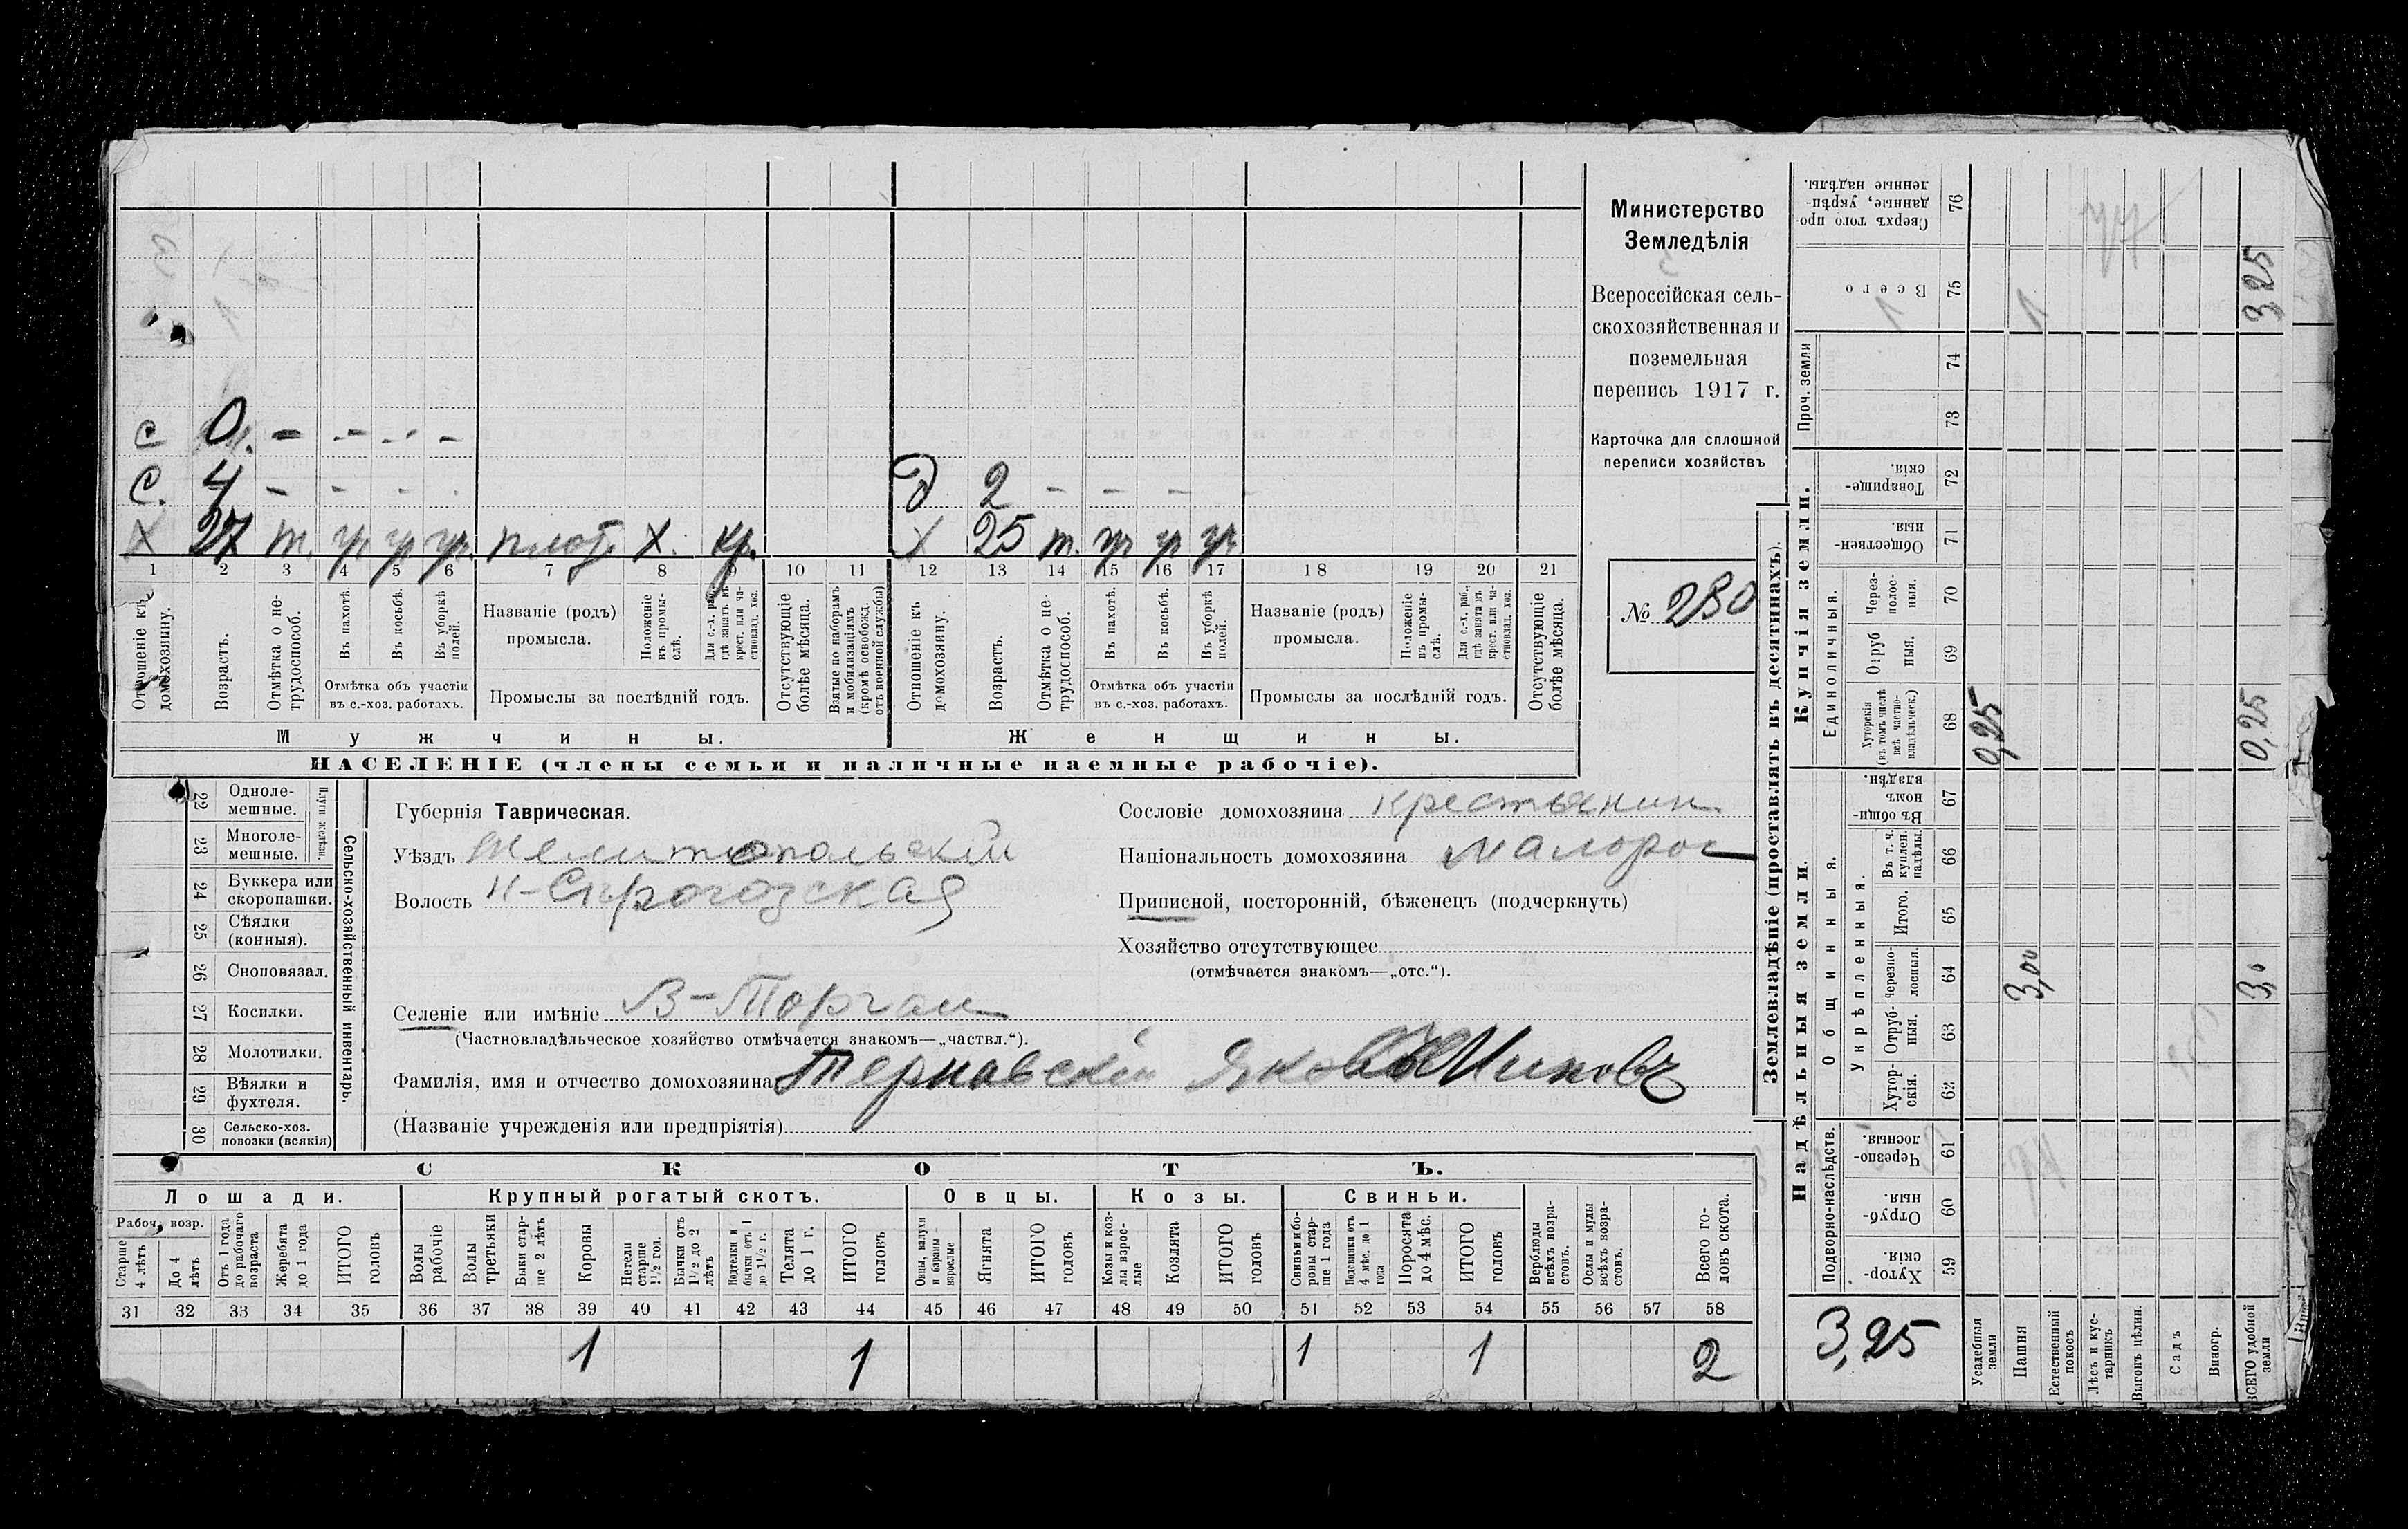 Министерство
Земледѣлія
Всероссійская сель-
скохозяйственная и
поземельная
перепись 1917 г.
Карточка для сплошной
переписи хозяйствъ
№ 280
с 0 - - - -
с. 4 - - - - Д 2 - - - -
х 27 т. ур ур ур. плот. х. кр. х 25 т. ур ур ур
1 2 3 4 5 6 7 8 9 10 11 12 13 14 15 16 17 18 19 20 21
Отношеніе къ домохозяину.
Возрастъ.
Отмѣтка о не-трудоспособ.
Въ пахотѣ.
Въ косьбѣ.
Въ уборкѣ полей.
Отмѣтка объ участіи
въ с.-хоз. работахъ.
Названіе (родъ)
промысла.
Положеніе въ промы-слѣ.
Для с.-х. раб., гдѣ занятъ въ крест. или ча-стновлад. хоз.
Промыслы за послѣдній годъ.
Отсутствующіе болѣе мѣсяца.
Взятые по наборамъ и мобилизаціямъ (кромѣ освобожд. отъ военной службы)
Отношеніе къ домохозяину.
Возрастъ.
Отмѣтка о не-трудоспособ.
Въ пахотѣ.
Въ косьбѣ.
Въ уборкѣ полей.
Отмѣтка объ участіи
въ с.-хоз. работахъ.
Названіе (родъ)
промысла.
Положеніе въ промы-слѣ.
Для с.-х. раб., гдѣ занята въ крест. или ча-стновлад. хоз.
Промыслы за послѣдній годъ.
Отсутствующіе болѣе мѣсяца.
Мужчины.
Женщины.
НАСЕЛЕНІЕ (члены семьи и наличные наемные рабочіе).
22 Одноле-мешные.
23 Многоле-мешные.
Плуги желѣзн.
24 Буккера или скоропашки.
25 Сѣялки (конныя).
26 Сноповязал.
27 Косилки.
28 Молотилки.
29 Вѣялки и фухтеля.
30 Сельско-хоз. повозки (всякія)
Сельско-хозяйственный инвентарь.
Губернія Таврическая.
Уѣздъ Мелитопольскій
Волость Н-Сирогозская
Селеніе или имѣніе В-Торгаи
(Частновладѣльческое хозяйство отмѣчается знакомъ—„частвл.“).
Фамилія, имя и отчество домохозяина Тернавскій Яковъ
(Названіе учрежденія или предпріятія)
Сословіе домохозяина крестьянин
Національность домохозяина малорос
Приписной, посторонній, бѣженецъ (подчеркнуть)
Хозяйство отсутствующее
(отмѣчается знакомъ—„отс.“).
СКОТЪ.
Лошади. Крупный рогатый скотъ. Овцы. Козы. Свиньи.
Рабоч. возр.
Старше 4 лѣтъ
До 4 лѣтъ
Отъ 1 года до рабочаго возраста
Жеребята до 1 года
ИТОГО головъ
Волы рабочіе
Волы третьяки
Быки стар-ше 2 лѣтъ
Коровы
Нетели старше 1½ год.
Бычки отъ 1½ до 2 лѣтъ
Подтелки и бычки отъ 1 до 1½ г.
Телята до 1 г.
ИТОГО головъ
Овцы, валухи и бараны взрослые
Ягнята
ИТОГО головъ
Козы и коз-лы взрос-лые
Козлята
ИТОГО головъ
Свиньи и бо-роны стар-ше 1 года
Подсвинки отъ 4 мѣс. до 1 года
Поросята до 4 мѣс.
ИТОГО головъ
Верблюды всѣхъ возра-стовъ.
Ослы и мулы всѣхъ возра-стовъ.
Всего го-ловъ скота.
31 32 33 34 35 36 37 38 39 40 41 42 43 44 45 46 47 48 49 50 51 52 53 54 55 56 57 58
1 1 1 1 2
Землевладѣніе (проставлять въ десятинахъ).
Надѣльныя земли.
Купчія земли.
Подворно-наслѣдств.
Общинныя.
Укрѣпленныя.
Единоличныя.
Проч. земли
Хутор-скія. 59
Отруб-ныя. 60
Черезпо-лосныя. 61
Хутор-скія. 62
Отруб-ныя. 63
Черезпо-лосныя. 64
Итого. 65
Въ т. ч. куплен. надѣлы. 66
Въ общи-номъ владѣн. 67
Хуторскія (въ томъ числѣ всѣ частно-владѣльческ.) 68
Отруб ныя. 69
Через-полос-ныя. 70
Обществен-ныя. 71
Товарище-скія. 72
73
74
Всего 75
Сверхъ того про-данные, укрѣп-ленные надѣлы. 76
3,25
Усадебныя земли 0,25
Пашня 3,00
Естественный покосъ
Лѣсъ и кус-тарникъ
Выгонъ цѣлин.
Садъ
Виногр.
ВСЕГО удобной земли 3,0 0,25 3,25